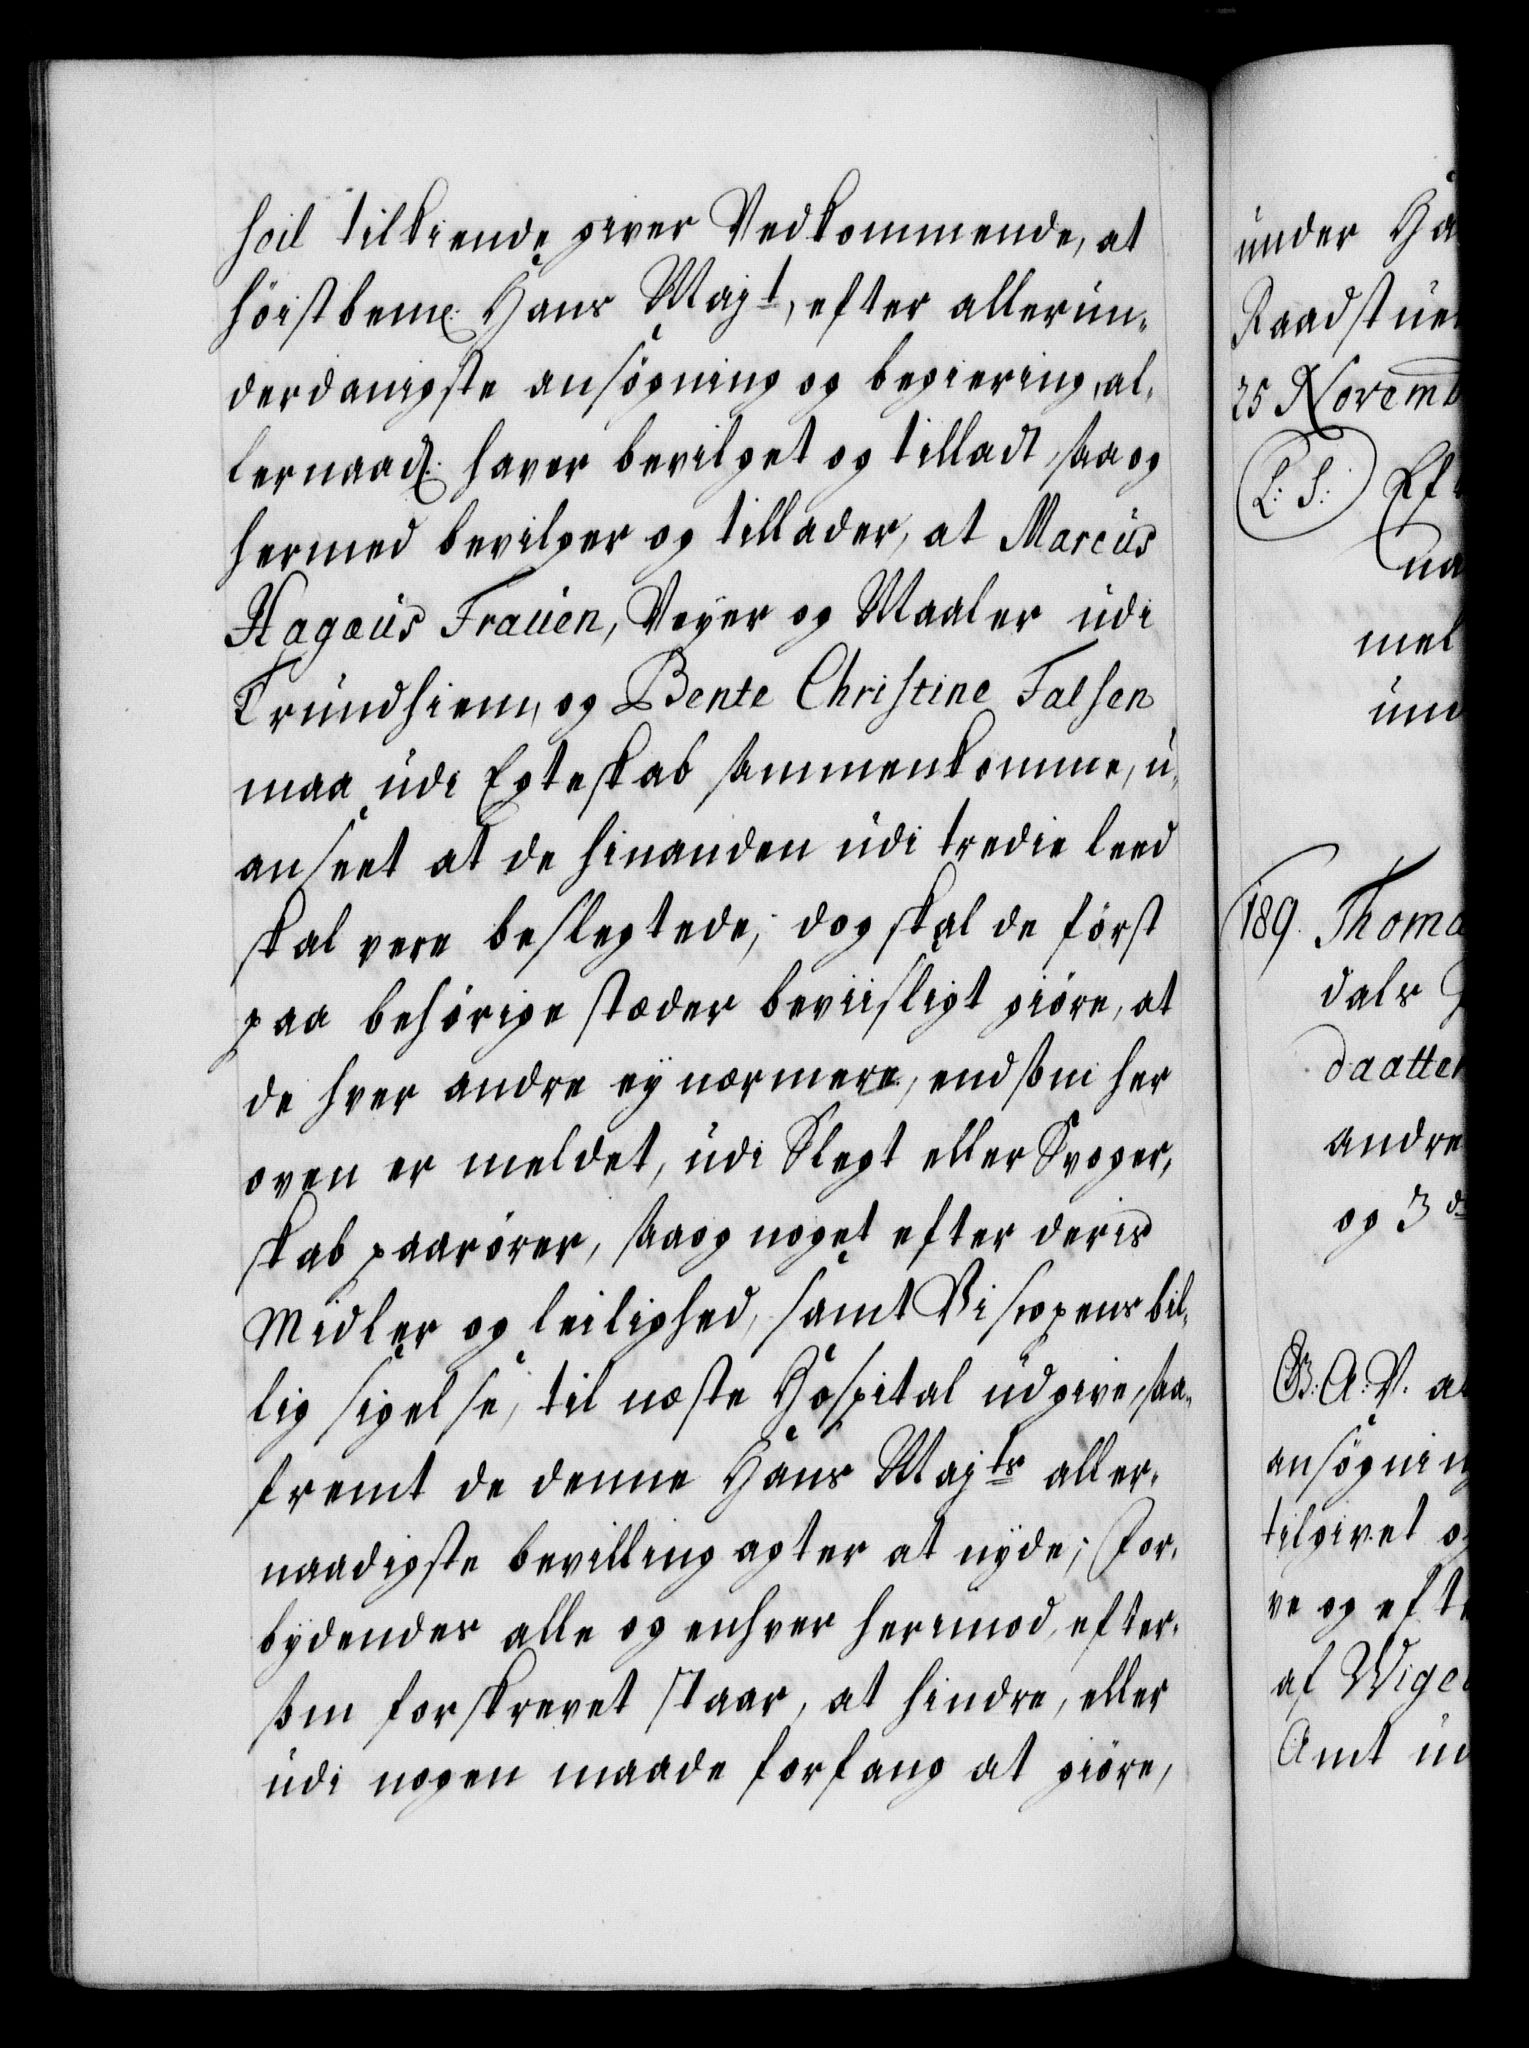 heil tilkiende giver Vedkommende, at
höistbemᵉ: Hans Majt, efter allerun-
derdanigste ansögning og begiering, al-
lernaadᵗ: haver bevilget og tilladt, saa og
hermed bevilger og tillader, at Marcus
Hagæus Frauen, Veyer og Maaler udi
Trundhiem, og Bente Christine Falsen
maa udi Egteskab sammenkomme, u-
anseet at de hinanden udi tredie leed
skal vere beslegtede; dog skal de först
paa behörige stæder beviisligt giöre, at
de hver andre ey nærmere, end som her
oven er meldet, udi Slegt eller Svoger-
skab paarörer, saa og noget efter deris
Midler og leilighed, samt Biscopens bil-
lig sigelse, til næste Hospital udgive, saa-
fremt de denne Hans Majts aller-
naadigste bevilling agter at nyde; For-
bydendes alle og enhver herimod, efter-
som forskrevet staar, at hindre, eller
udi nogen maade forfang at giöre,
under
Raadstue
25 Novemb
L: S:
189. Thoma
dals
daatter
andre
og 3d
G: A: V. a
ansögning
tilgivet og
ve og efte
af Wige
Amt ud